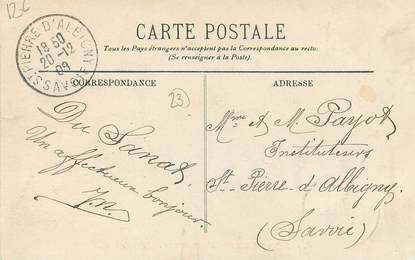 12€
ST PIERRE D'ALBIGNY
18 50
20-12
09
SAVOIE
CARTE POSTALE
Tous les Pays étrangers n'acceptent pas la Correspondance au recto.
(Se renseigner à la Poste).
CORRESPONDANCE
Du Sanat.
Un affectueux bonjour.
ADRESSE
23
Mme et M. Payot
Instituteurs
St-Pierre-d'Albigny
(Savoie)